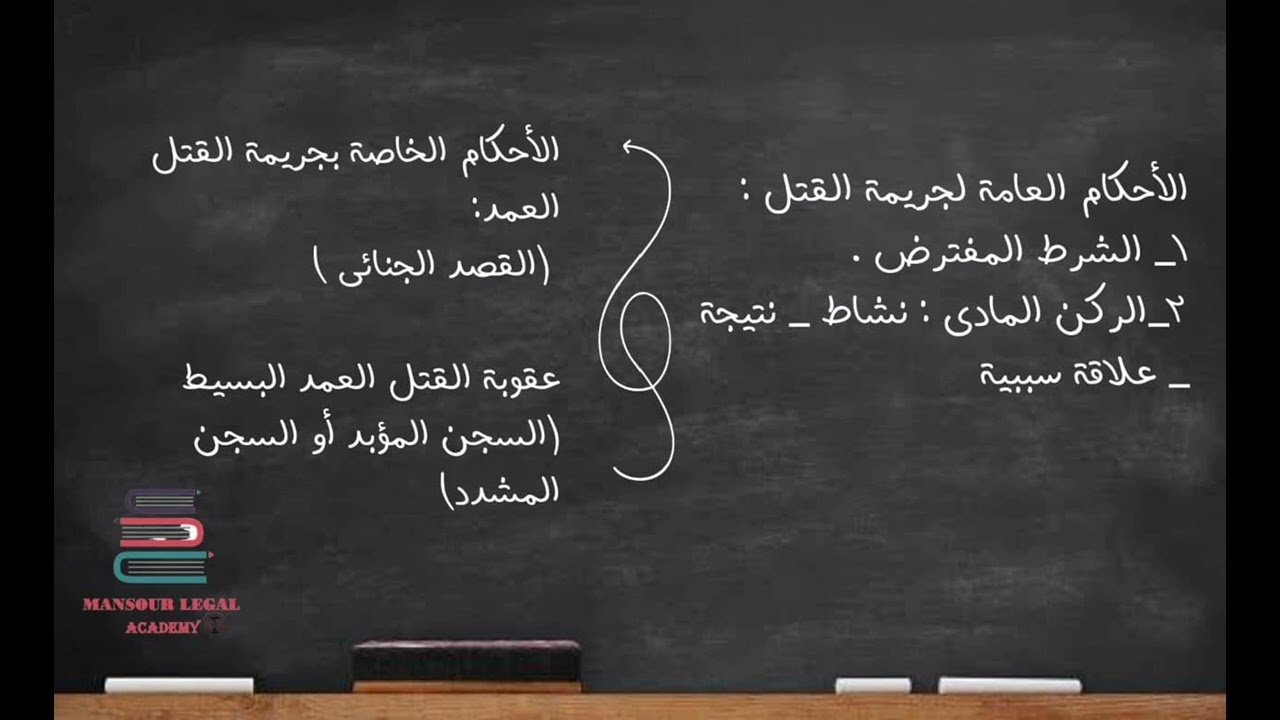 الأحكام العامة لجريمة القتل :
١_ الشرط المفترض .
٢_الركن المادى : نشاط _ نتيجة
_ علاقة سببية
الأحكام الخاصة بجريمة القتل
العمد:
(القصد الجنائى )
عقوبة القتل العمد البسيط
(السجن المؤبد أو السجن
المشدد)
MANSOUR LEGAL
ACADEMY